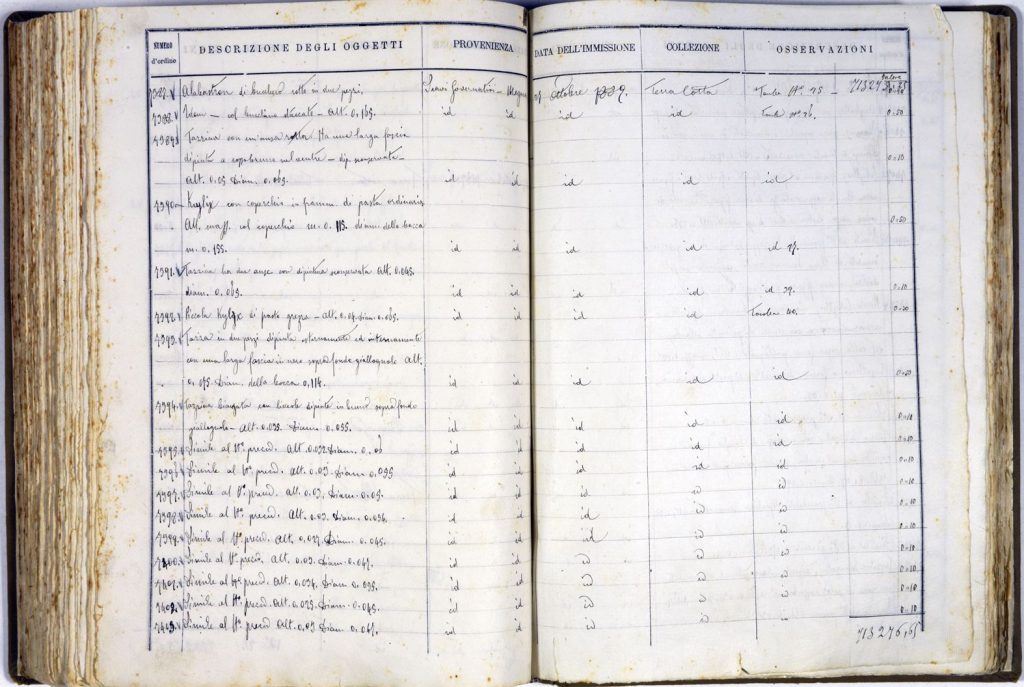 NUMERO d'ordine DESCRIZIONE DEGLI OGGETTI PROVENIENZA DATA DELL'IMMISSIONE COLLEZIONE OSSERVAZIONI
Valore
7387. Alabastron di bucchero rotto in due pezzi. Scavi Governativi - Megara Ottobre 1889. Terra Cotta Tomba N° 95 -
7388. Idem - col beccuccio staccato - Alt. 0,165. id id id id Tomba N° 96. 0=50
7389. Tazzina con un'ansa rotta Ha una larga fascia
dipinta nel centro - dip. sconservata - 0=10
Alt. 0.05 Diam. 0.065. id id id id id
7390 - Kylix con coperchio in framm. di pasta ordinaria
Alt. mass. col coperchio m. 0. 115. diam. della bocca 0=50
m. 0.155. id id id id id 97.
7391. Tazzina ha due anse con dipintura sconservata Alt. 0.045.
diam. 0.065. id id id id id 99. 0=10
7392. Piccola Kylix di pasta grezza - Alt. 0.04. Diam. 0.065. id id id id Tomba 40. 0=20
7393. Tazza in due pezzi dipinta esternamente ed internamente
con una larga fascia in nero sopra fondo giallognolo Alt.
0.045 Diam. della bocca 0,114. id id id id id 0=50
7394. Tazzina biansata con liccole dipinte in bruno sopra fondo
giallognolo - Alt. 0.035. Diam. 0.055. id id id id id 0=10
7395. Simile al N° preced. Alt. 0.032. Diam. 0.06 id id id id id 0=10
7396. Simile al N° preced. Alt. 0.03. Diam. 0.055 id id id id id 0=10
7397. Simile al N° preced. Alt. 0.03. Diam. 0.05. id id id id id 0=10
7398. Simile al N° preced. Alt. 0.03. Diam. 0.056. id id id id id 0=10
7399. Simile al N° preced. Alt. 0.027. Diam. 0.045. id id id id id 0=10
7400. Simile al N° preced. Alt. 0.03. Diam. 0.047. id id id id id 0=10
7401. Simile al N° preced. Alt. 0.034. Diam. 0.055. id id id id id 0=10
7402. Simile al N° preced. Alt. 0.025. Diam. 0.045. id id id id id 0=10
7403. Simile al N° preced Alt. 0.03 Diam. 0.065. id id id id id 0=10
713276,65